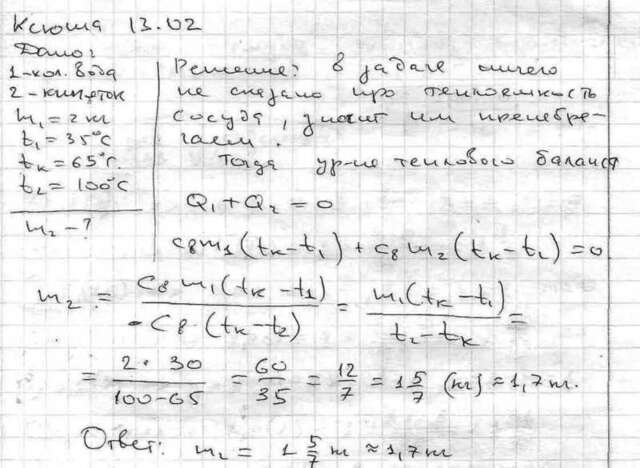 Ксюша 13.02
Дано:
1-кол. вода
2-кипяток
m₁ = 2 кг
t₁ = 35°C
tк = 65°C.
t₂ = 100°C
m₂ - ?
Решение: в задаче ничего
не сказано про теплоемкость
сосуда, значит им пренебре-
гаем.
Тогда ур-ие теплового баланса
Q₁ + Q₂ = 0
cвm₁(tк-t₁) + cвm₂(tк-t₂) = 0
m₂ = cвm₁(tк-t₁) / -cв·(tк-t₂) = m₁(tк-t₁) / t₂-tк =
= 2·30 / 100-65 = 60/35 = 12/7 = 1 5/7 (кг) ≈ 1,7 кг.
Ответ: m₂ = 1 5/7 кг ≈ 1,7 кг